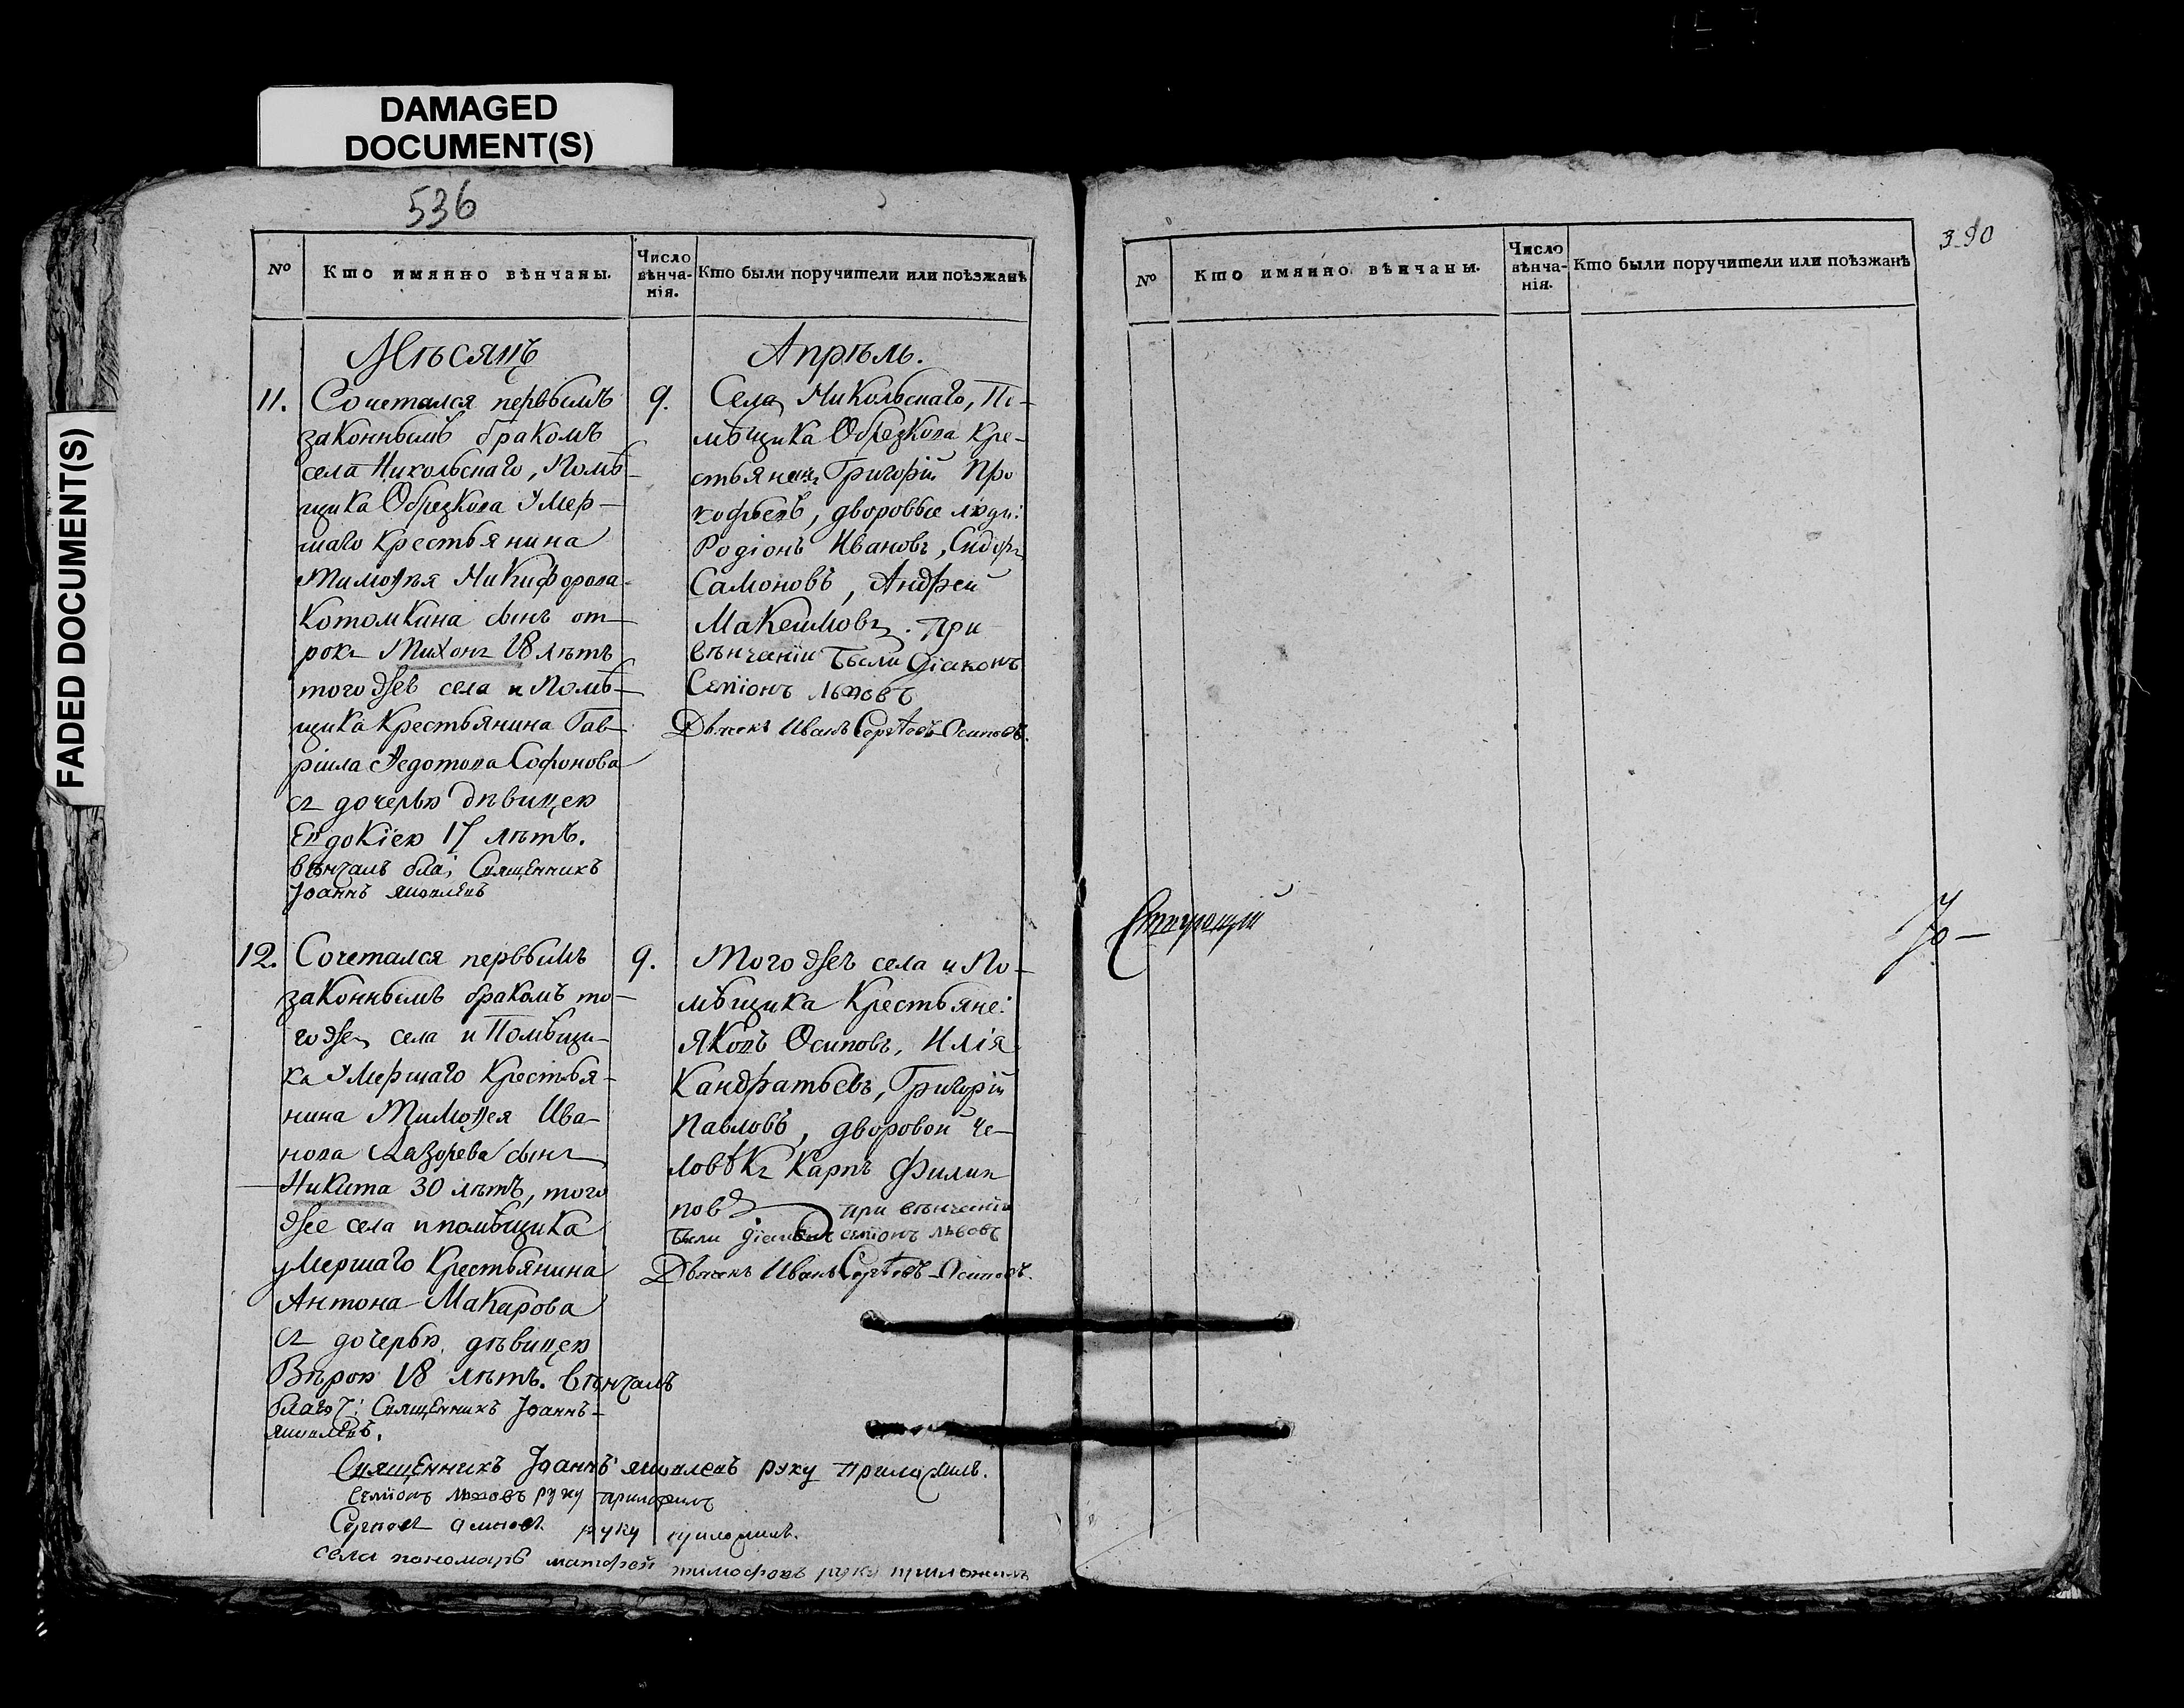 DAMAGED
DOCUMENT(S)
FADED DOCUMENT(S)
536
№
Кто имянно вѣнчаны.
Число
вѣнча-
нія.
Кто были поручители или поѣзжанѣ
Мѣсяцъ
11. Сочетался первымъ
законнымъ бракомъ
села Никольскаго, помѣ-
щика Обрезкова умер-
шаго крестьянина
Тимоѳѣя Никифорова
Котомкина сынъ от-
рокъ Тихонъ 18 лѣтъ
того же села и помѣ-
щика крестьянина Гав-
ріила Ѳедотова Софонова
съ дочерью дѣвицею
Евдокіею 17 лѣтъ.
вѣнчалъ бла: Священникъ
Іоаннъ Яковлевъ
9.
Апрѣль.
Села Никольскаго, По-
мѣщика Обрезкова кре-
стьянинъ Григорій Про
кофьевъ, дворовые люди:
Родіонъ Ивановъ, Сидоръ
Самоновъ, Андрей
Макеимовъ. при
вѣнчаніи были діаконъ
Семіонъ Львовъ
Дьячекъ Иванъ Сергѣевъ Осиповъ.
12. Сочетался первымъ
законнымъ бракомъ то-
го же села и Помѣщи-
ка умершаго крестья-
нина Тимоѳея Ива-
нова Лазорева сынъ
Никита 30 лѣтъ, того
же села и помѣщика
умершаго крестьянина
Антона Макарова
съ дочерью дѣвицею
Вѣрою 18 лѣтъ. вѣнчалъ
благоч: Священникъ Іоаннъ
Яковлевъ.
9.
Того жеъ села и По-
мѣщика Крестьяне:
Яковъ Осиповъ, Илія
Кандратьевъ, Григорій
Павловъ, дворовой че-
ловѣкъ Карпъ Филип
повъ при вѣнчаніи
были діаконъ семіонъ львовъ
Дьячекъ Иванъ Сергѣевъ Осиповъ.
Священникъ Іоаннъ Яковлевъ руку приложилъ.
Семіонъ львовъ руку приложилъ
Сергѣевъ осиповъ руку приложилъ.
села пономарь матфей тимофеевъ руку приложилъ
390
№
Кто имянно вѣнчаны.
Число
вѣнча-
нія.
Кто были поручители или поѣзжанѣ